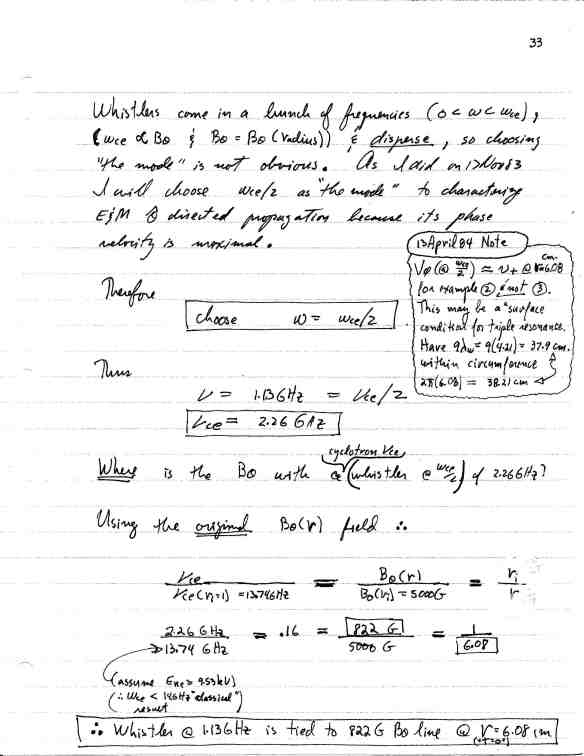 33
Whistlers come in a bunch of frequencies (0 < ω < ωce),
(ωce ∝ Bθ & Bθ = Bθ(radius)) & disperse, so choosing
"the mode" is not obvious. As I did on 17Nov83
I will choose ωce/2 as "the mode" to characterize
E&M θ directed propagation because its phase
velocity is maximal.
13 April 84 Note
Vφ(@ ωce/2) ≈ v+ @ r=6.08 cm.
for example ② & not ③.
This may be a "surface
condition for triple resonance.
Have 9λw = 9(4.21) = 37.9 cm.
within circumference
2π(6.08) = 38.21 cm
Therefore
choose ω = ωce/2
Thus
ν = 1.13 GHz = νce/2
νce = 2.26 GHz
cyclotron νce
Where is the Bθ with a (whistler @ ωce/2) of 2.26 GHz?
Using the original Bθ(r) field ∴
νce / νce(ri=1) = 13.74 GHz = Bθ(r) / Bθ(ri) = 5000G = ri / r
2.26 GHz / 13.74 GHz = .16 = 822 G / 5000 G = 1 / 6.08
(assume Ene > 9.53 kV)
(∴ ωce < 14 GHz "classical")
result
∴ Whistler @ 1.13 GHz is tied to 822 G Bθ line @ r = 6.08 cm